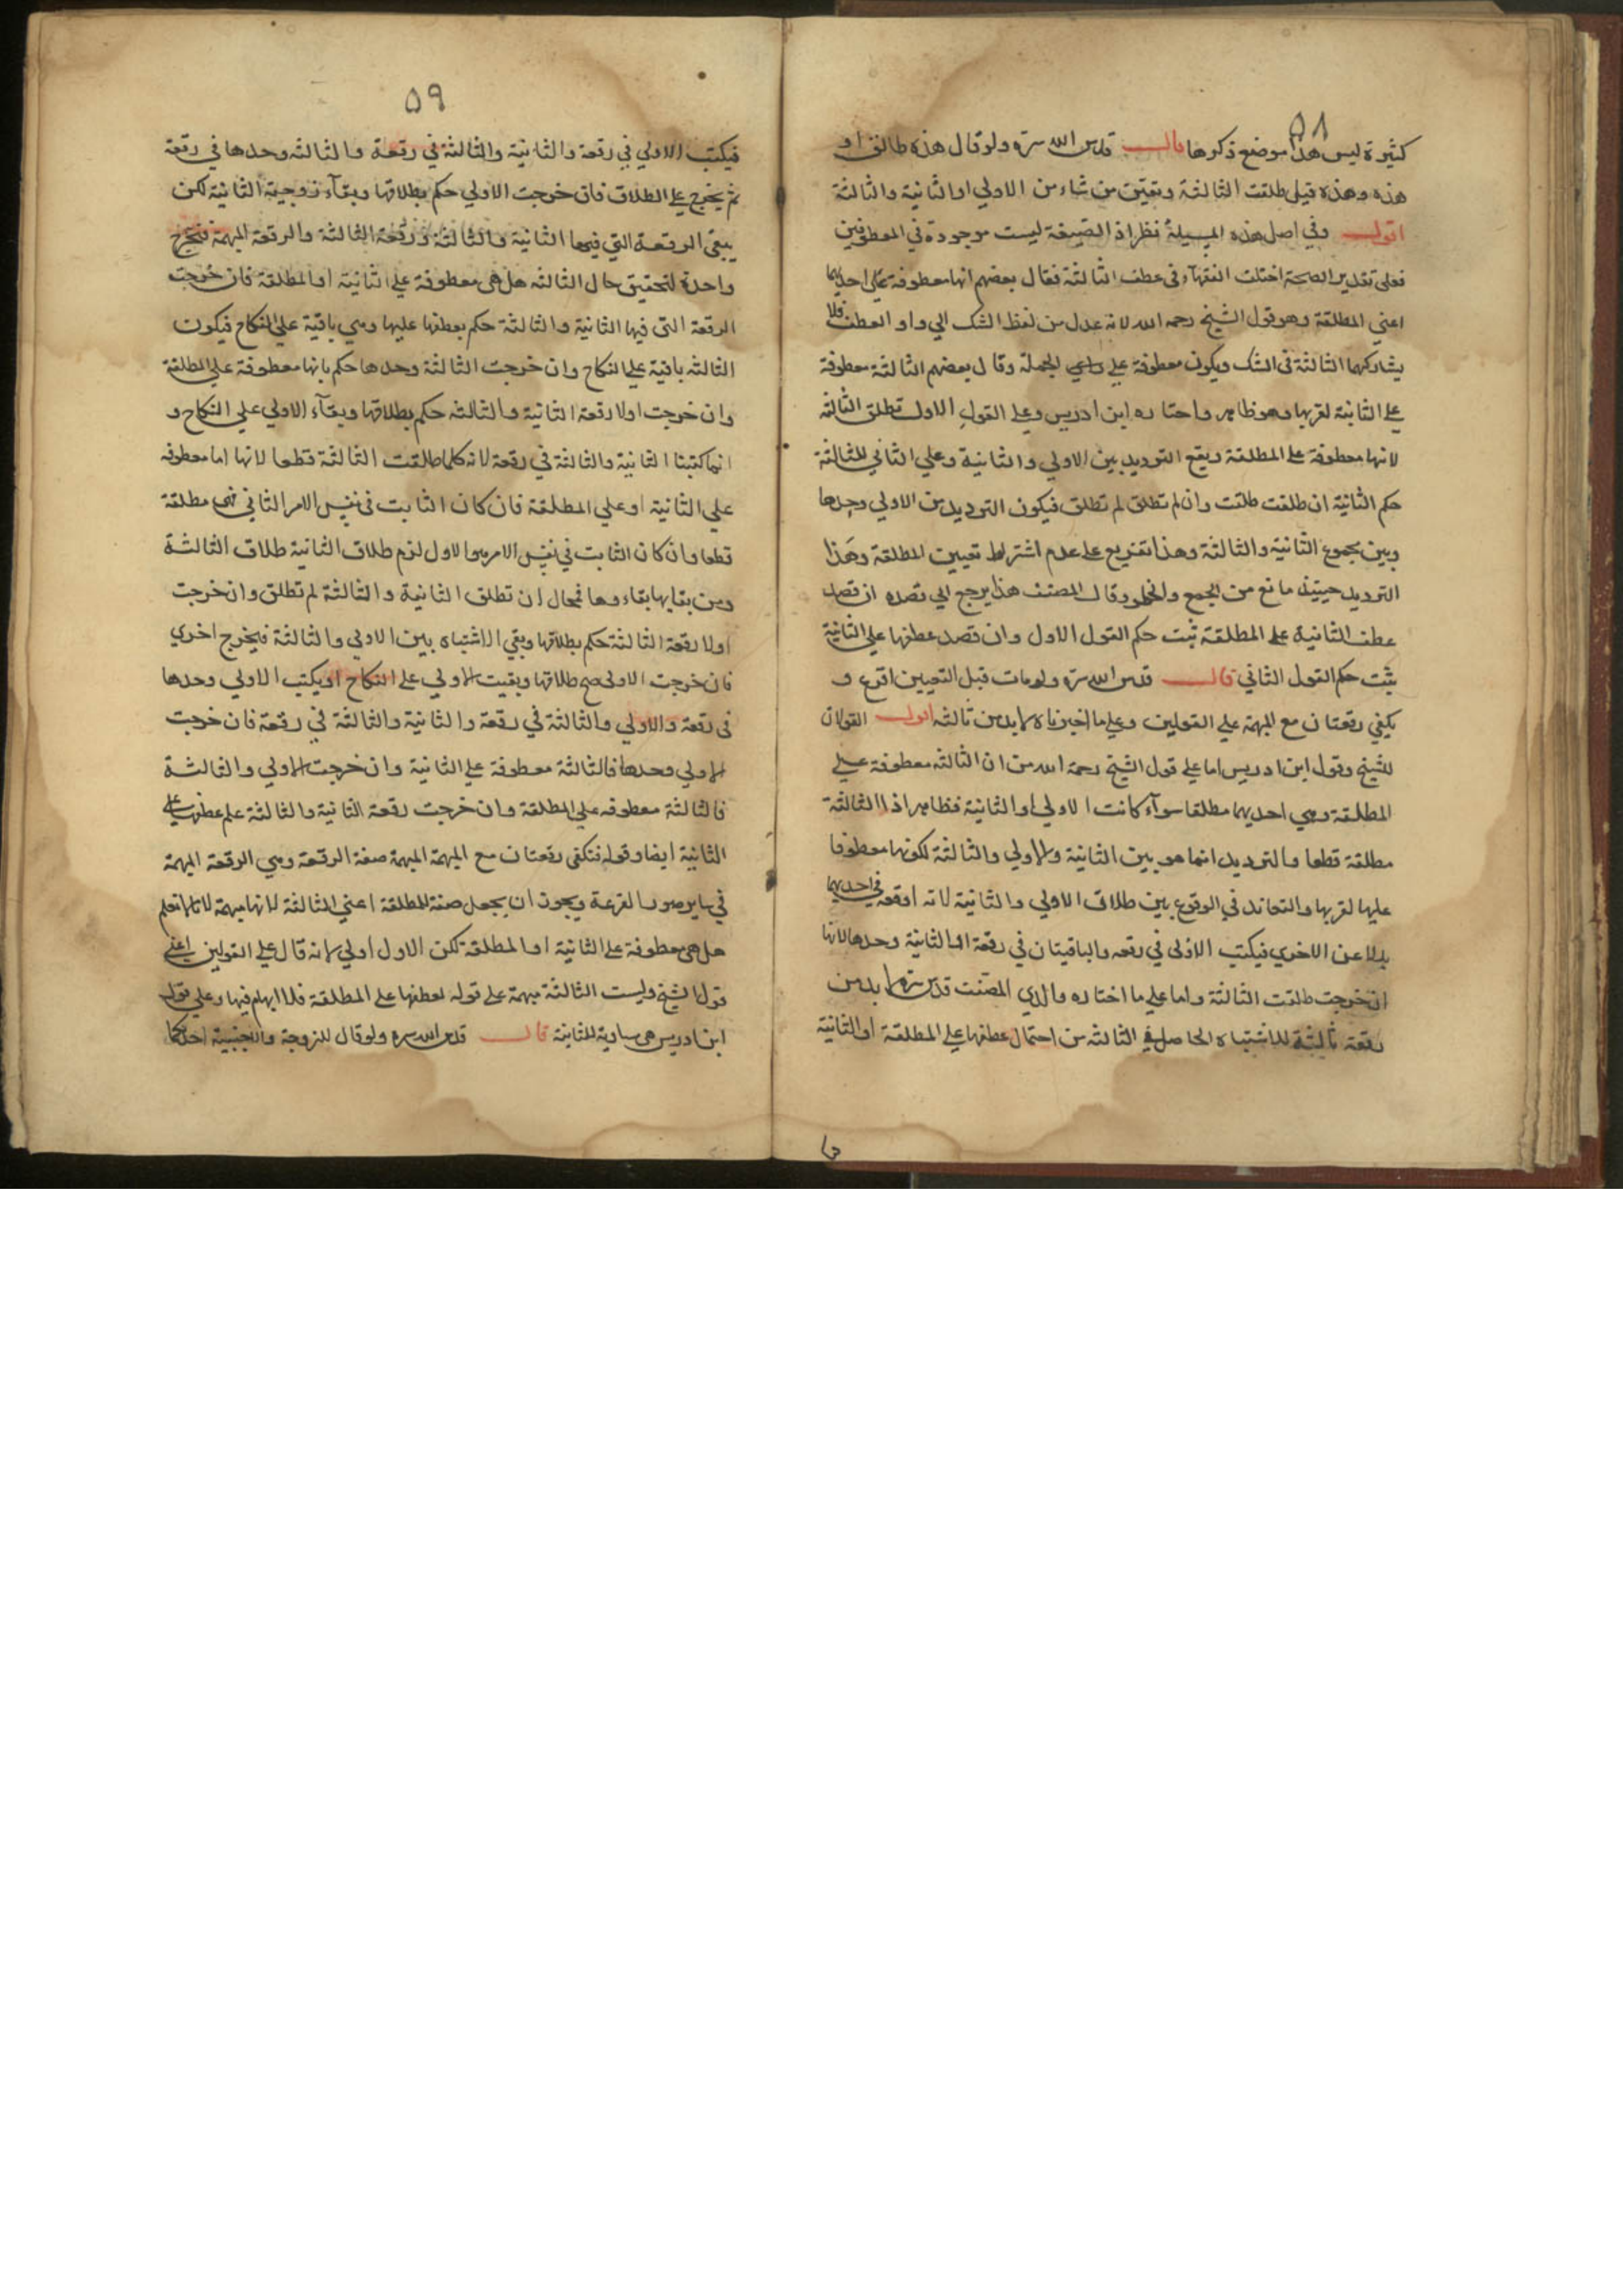 ٥٨
كثيرة ليس هذا موضع ذكرها قال قدس الله سره ولو قال هذه طالق او
هذه وهذه قيل طلقت الثالثة وتعين من شاء من الاولي او الثانية والثالثة
اقول وفي اصل هذه المسيلة نظر اذ الصيغة ليست موجودة في المعطوفين
فعلى تقدير الصحة اختلف الفقهآء في عطف الثالثة فقال بعضهم انها معطوفة على احديهما
اعني المطلقة وهو قول الشيخ رحمه الله لانه عدل من لفظ الشك الي واو العطف فلا
يشاركهما الثالثة في الشك ويكون معطوفة علي الجملة وقال بعضهم الثالثة معطوفة
علي الثانية لقربها وهو ظاهر واختاره ابن ادريس وعلي القول الاول تطلق الثالثة
لانها معطوفة على المطلقة ويقع الترديد بين الاولي والثانية وعلي الثاني للثالثة
حكم الثانية ان طلقت طلقت وان لم تطلق لم تطلق فيكون الترديد بين الاولي وحدها
وبين مجموع الثانية والثالثة وهذا تفريع على عدم اشتراط تعيين المطلقة وهذا
الترديد حينيذ مانع من الجمع والخلو وقال المصنف هذا يرجع الي قصده ان قصد
عطف الثانية على المطلقة ثبت حكم القول الاول وان قصد عطفها علي الثانية
يثبت حكم القول الثاني قال قدس الله سره ولو مات قبل التعيين اقرع و
يكفي رقعتان مع المبهمة علي القولين وعلي ما اخترناه لا بد من ثالثة اقول القولان
للشيخ وقول ابن ادريس اما على قول الشيخ رحمة الله من ان الثالثه معطوفة علي
المطلقة وهي احديهما مطلقا سوآء كانت الاولي او الثانية فظاهر اذ الثالثة
مطلقة قطعا والترديد انما هو بين الثانية والاولي والثالثة لكونها معطوفا
عليها لقربها والتعاند في الوقوع بين طلاق الاولي والثانية لانه اوقعه في احديهما
بدلا عن الاخري فيكتب الاولى في رقعه والباقيتان في رقعة اما الثانية وحدها لانها
ان خرجت طلقت الثالثة واما علي ما اختاره والدي المصنف قدس سره لا بد من
رقعة ثالثة للاشتباه الحاصل في الثالثه من احتمال عطفها علي المطلقة او الثانية
٥٩
فيكتب الاولي في رقعة والثانية والثالثة في رقعة والثالثه وحدها في رقعة
ثم يخرج علي الطلاق فان خرجت الاولي حكم بطلاقها وبقآء زوجية الثانية لكن
يبقى الرقعة التي فيها الثانية والثالثة ورقعة الثالثة والرقعة المبهمة فيخرج
واحدة لتحقيق حال الثالثه هل هي معطوفة علي الثانية او المطلقة فان خرجت
الرقعة التي فيها الثانية والثالثة حكم بعطفها عليها وهي باقية علي النكاح فيكون
الثالثه باقية علي النكاح وان خرجت الثالثة وحدها حكم بانها معطوفة علي المطلقة
وان خرجت اولا رقعة الثانية والثالثه حكم بطلاقها وبقآء الاولي علي النكاح و
انما كتبنا الثانية والثالثة في رقعة لانه كلما طلقت الثالثة قطعا لانها اما معطوفه
علي الثانية او علي المطلقة فان كان الثابت في نفس الامر الثاني فهي مطلقة
قطعا وان كان الثابت في نفس الامر هو الاول لزم طلاق الثانية طلاق الثالثة
ومن بقايها بقاءوها فمحال ان تطلق الثانية والثالثة لم تطلق وان خرجت
اولا رقعة الثالثة حكم بطلاقها وبقي الاشتباه بين الاولي والثالثة فيخرج اخري
فان خرجت الاولى صح طلاقها وبقيت الاولي علي النكاح او يكتب الاولي وحدها
في رقعة والاولي والثالثة في رقعة والثانية والثالثة في رقعة فان خرجت
الاولي وحدها فالثالثة معطوفة علي الثانية وان خرجت الاولي والثالثة
فالثالثة معطوفه علي المطلقة وان خرجت رقعة الثانية والثالثة علم عطفها علي
الثانية ايضا وقوله فتكفى رقعتان مع المبهمة المبهمة صفة الرقعة وهي الرقعة المبهمة
في ساير صور القرعة ويجوز ان يجعل صفة للمطلقة اعني الثالثة لانها مبهمة لانا لا نعلم
هل هي معطوفة علي الثانية او المطلقة لكن الاول اولي لانه قال علي القولين اعني
قول الشيخ وليست الثالثة مبهمة على قوله لعطفها على المطلقة فلا ابهام فيها وعلي قول
ابن ادريس هي مساوية للثانية قال قدس الله سره ولو قال للزوجة والاجنبية احديكما